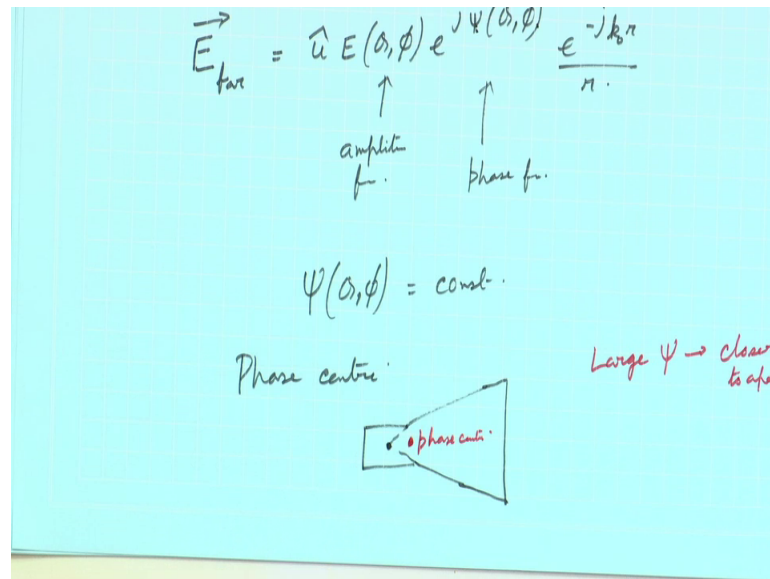 E⃗_far = û E(θ,φ) e^{jΨ(θ,φ)} e^{-jk₀r}/r.
amplit
fn.
phase fn.
Ψ(θ,φ) = const.
Phase centre
Large Ψ → closer
to ape
phase centr.